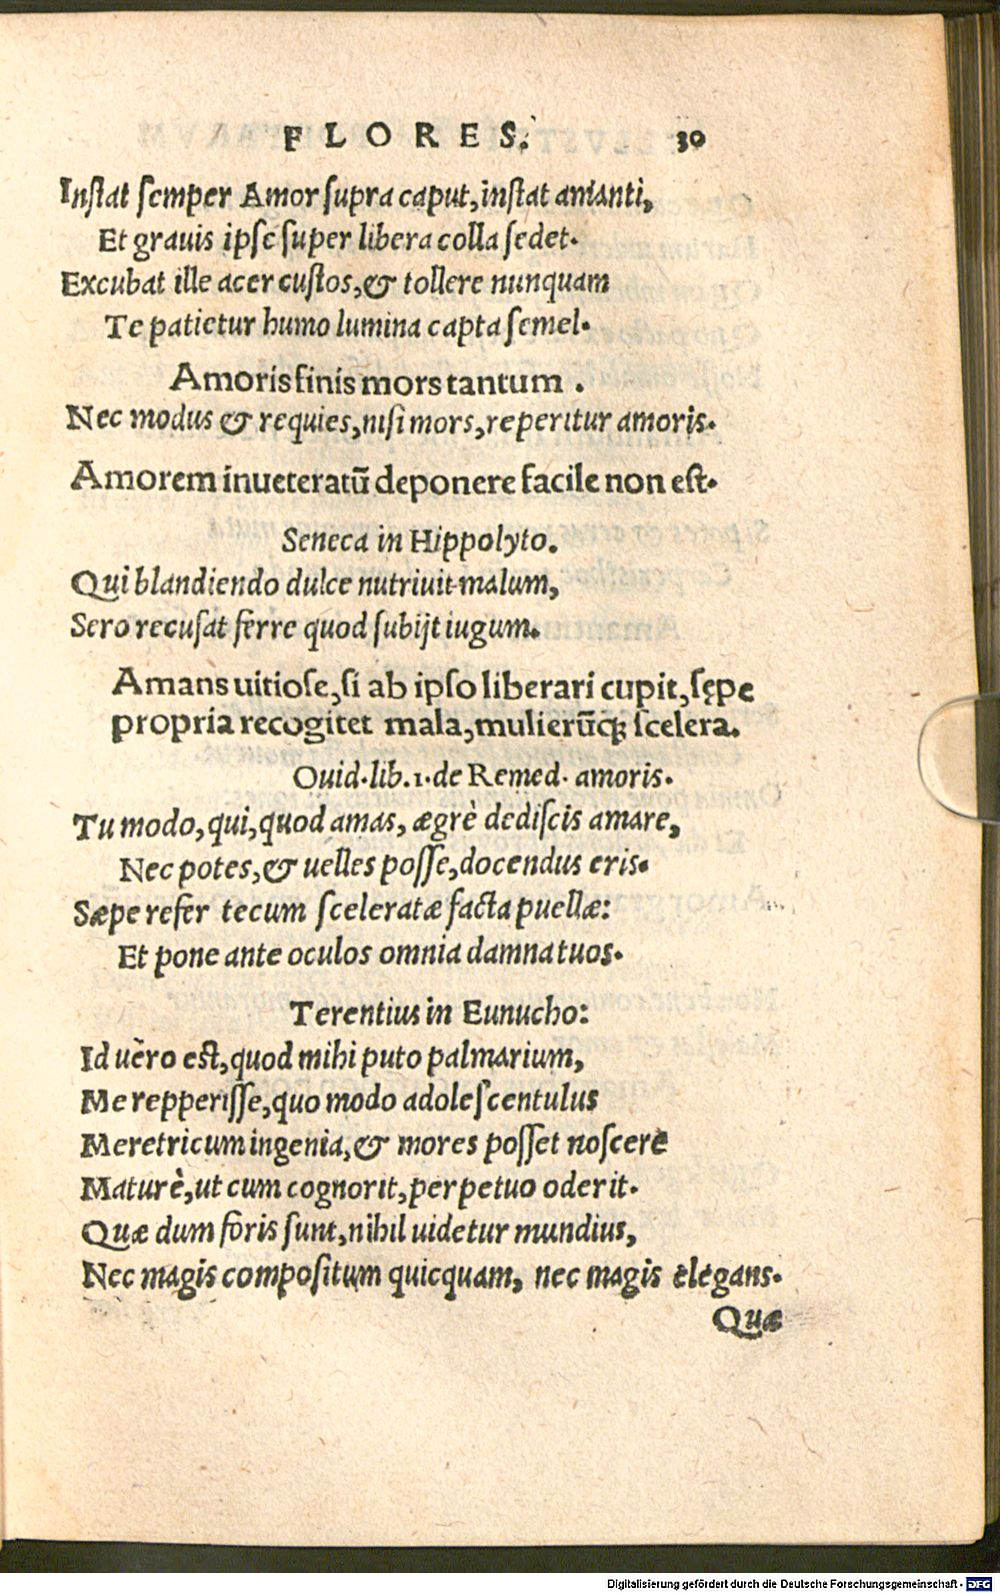 FLORES. 30
Instat semper Amor supra caput, instat amanti,
Et grauis ipse super libera colla sedet.
Excubat ille acer custos, & tollere nunquam
Te patietur humo lumina capta semel.
Amoris finis mors tantum.
Nec modus & requies, nisi mors, reperitur amoris.
Amorem inueteratū deponere facile non est.
Seneca in Hippolyto.
Qui blandiendo dulce nutriuit malum,
Sero recusat ferre quod subijt iugum.
Amans uitiose, si ab ipso liberari cupit, sępe
propria recogitet mala, mulierūq́; scelera.
Ouid. lib. 1. de Remed. amoris.
Tu modo, qui, quod amas, ægrè dediscis amare,
Nec potes, & uelles posse, docendus eris.
Sæpe refer tecum sceleratæ facta puellæ:
Et pone ante oculos omnia damna tuos.
Terentius in Eunucho:
Id uèro est, quod mihi puto palmarium,
Me repperisse, quo modo adolescentulus
Meretricum ingenia, & mores posset noscere
Maturè, ut cum cognorit, perpetuo oderit.
Quæ dum foris sunt, nihil uidetur mundius,
Nec magis compositum quicquam, nec magis elegans.
Quæ
Digitalisierung gefördert durch die Deutsche Forschungsgemeinschaft - DFG